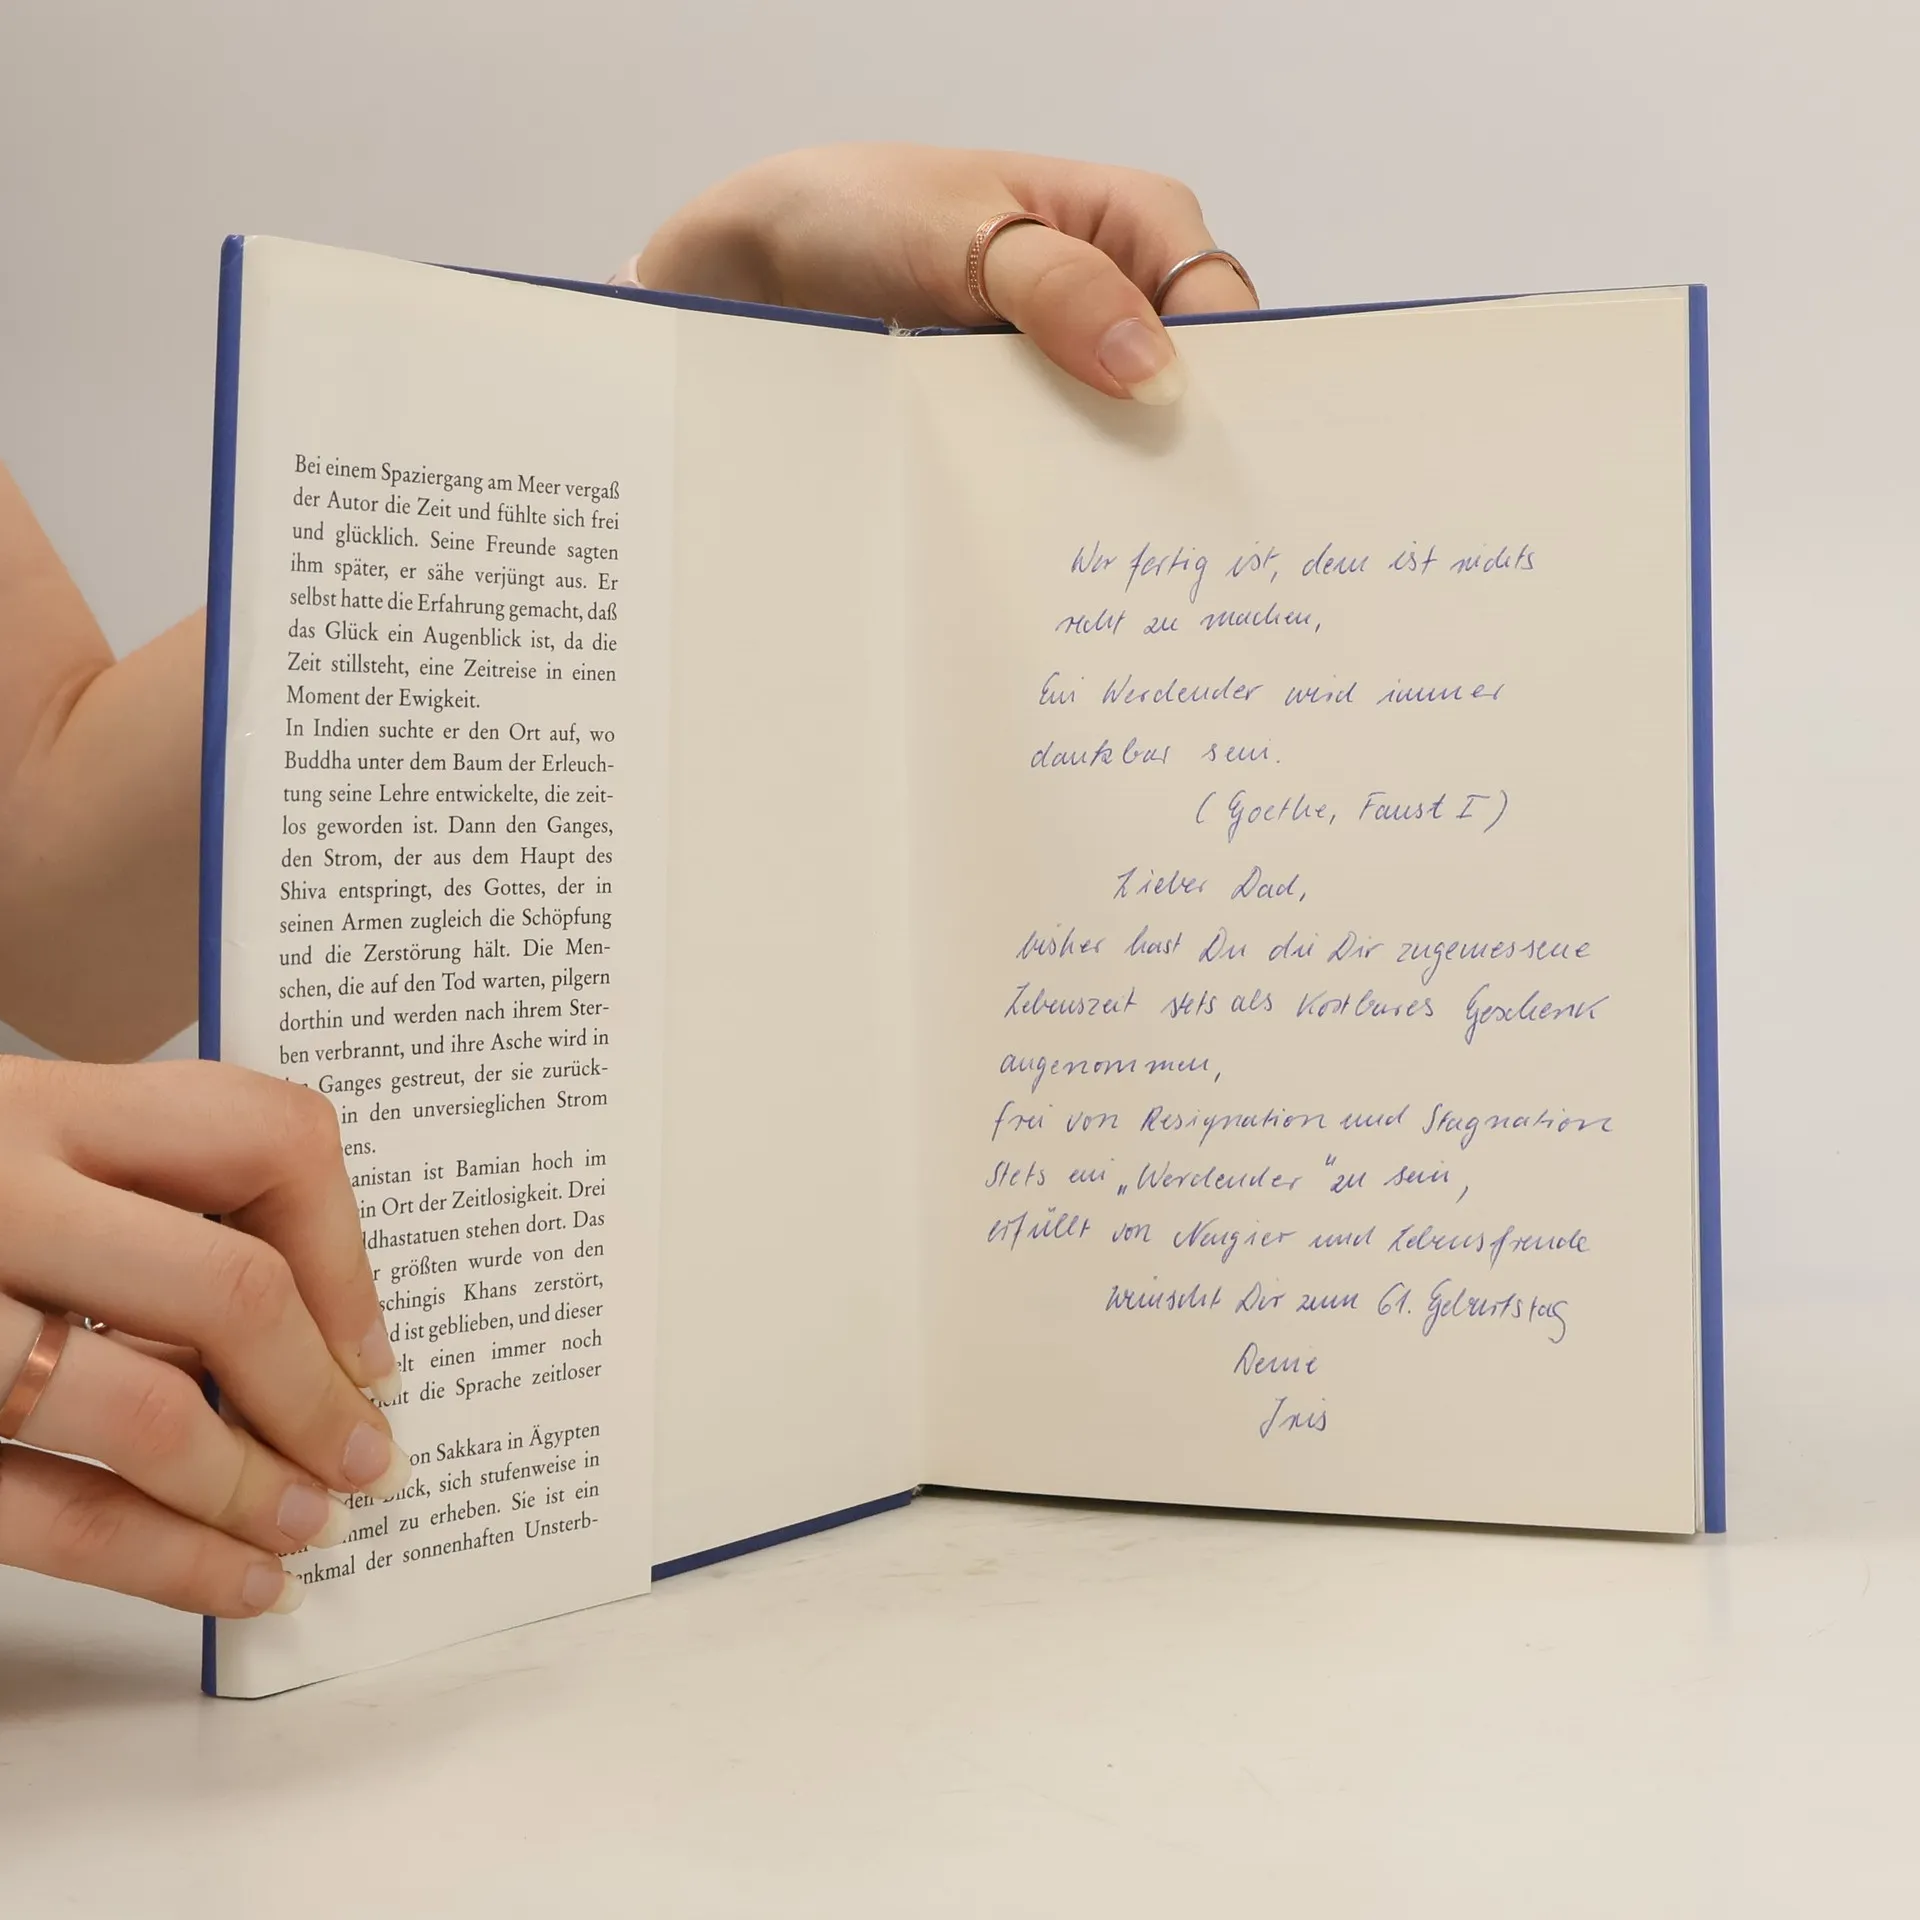 Bei einem Spaziergang am Meer vergaß
der Autor die Zeit und fühlte sich frei
und glücklich. Seine Freunde sagten
ihm später, er sähe verjüngt aus. Er
selbst hatte die Erfahrung gemacht, daß
das Glück ein Augenblick ist, da die
Zeit stillsteht, eine Zeitreise in einen
Moment der Ewigkeit.
In Indien suchte er den Ort auf, wo
Buddha unter dem Baum der Erleuch-
tung seine Lehre entwickelte, die zeit-
los geworden ist. Dann den Ganges,
den Strom, der aus dem Haupt des
Shiva entspringt, des Gottes, der in
seinen Armen zugleich die Schöpfung
und die Zerstörung hält. Die Men-
schen, die auf den Tod warten, pilgern
dorthin und werden nach ihrem Ster-
ben verbrannt, und ihre Asche wird in
Ganges gestreut, der sie zurück-
in den unversieglichen Strom
ens.
anistan ist Bamian hoch im
in Ort der Zeitlosigkeit. Drei
dhastatuen stehen dort. Das
r größten wurde von den
schingis Khans zerstört,
d ist geblieben, und dieser
elt einen immer noch
die Sprache zeitloser
on Sakkara in Ägypten
den Blick, sich stufenweise in
mmel zu erheben. Sie ist ein
enkmal der sonnenhaften Unsterb-
Wer fertig ist, dem ist nichts
recht zu machen,
Ein Werdender wird immer
dankbar sein.
(Goethe, Faust I)
Lieber Dad,
bisher hast Du die Dir zugemessene
Lebenszeit stets als kostbares Geschenk
angenommen,
frei von Resignation und Stagnation
Stets ein „Werdender" zu sein,
erfüllt von Neugier und Lebensfreude
wünscht Dir zum 61. Geburtstag
Deine
Iris